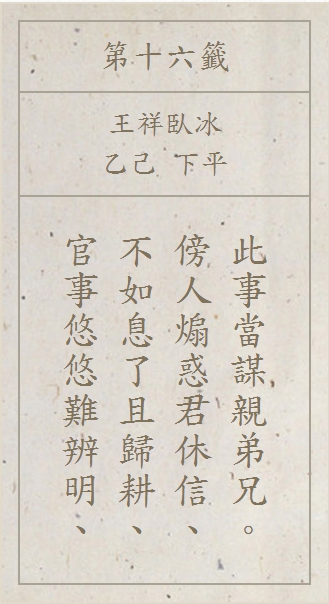 第十六籤
王祥臥冰
乙己 下平
官事悠悠難辨明、
不如息了且歸耕、
傍人煽惑君休信、
此事當謀親弟兄。